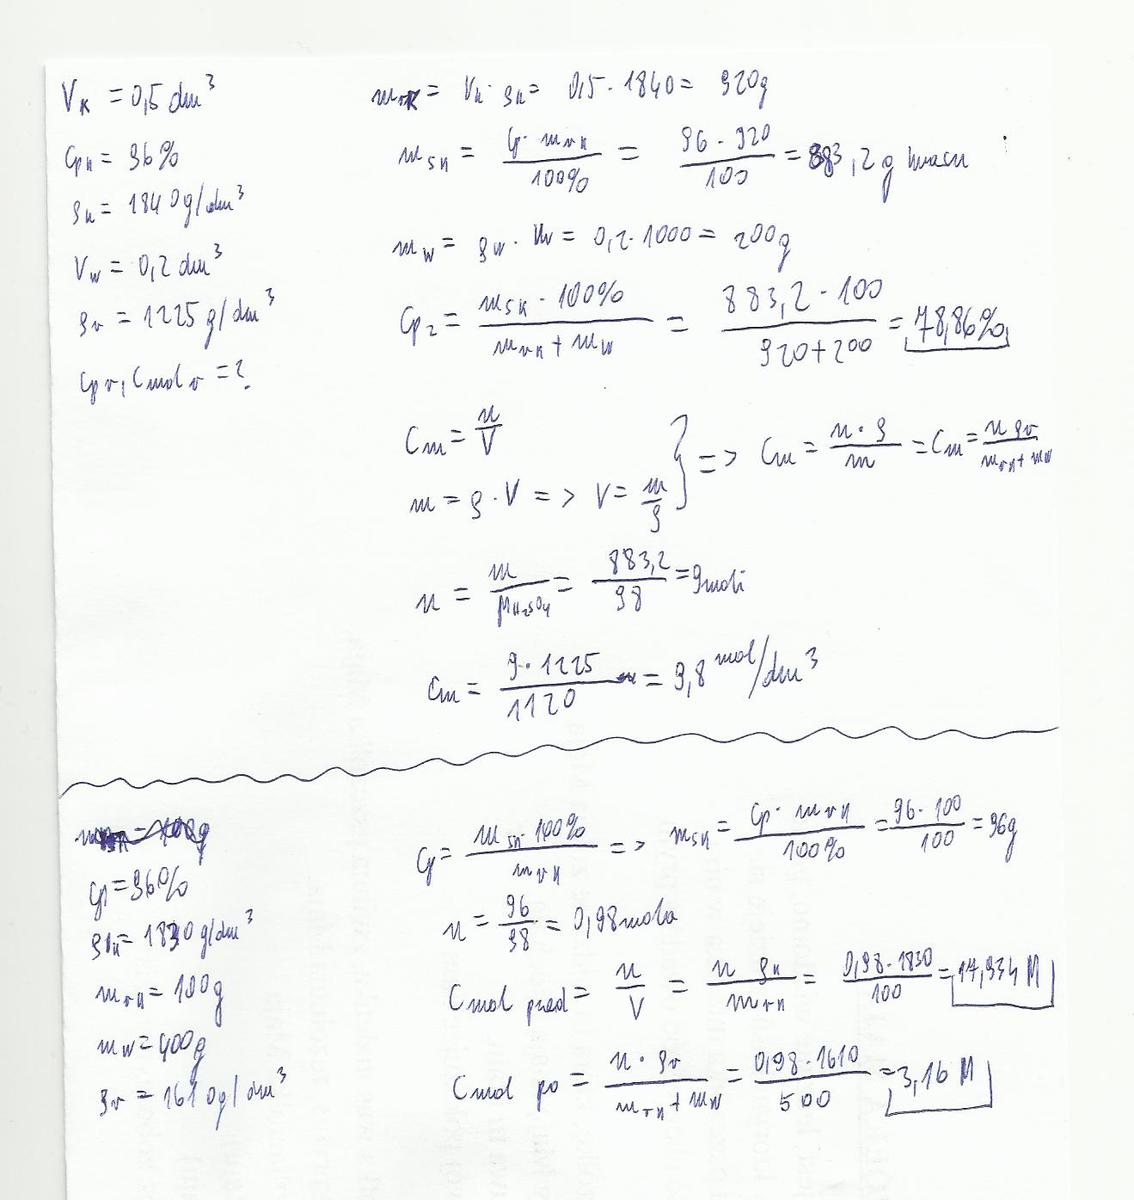 V_K = 0,5 dm³
c_pk = 96%
ρ_k = 1840 g/dm³
V_w = 0,2 dm³
ρ_r = 1225 g/dm³
c_pr, c_mol r = ?
m_rk = V_k · ρ_k = 0,5 · 1840 = 920g
m_sk = c_p · m_rk / 100% = 96 · 920 / 100 = 883,2 g kwasu
m_w = ρ_w · V_w = 0,2 · 1000 = 200g
c_p2 = m_sk · 100% / m_rk + m_w = 883,2 · 100 / 920 + 200 = 78,86%
c_m = n / V
m = ρ · V => V = m / ρ } => c_m = n · ρ / m = c_m = n ρ_r / m_rk + m_w
n = m / μ_H₂SO₄ = 883,2 / 98 = 9 moli
c_m = 9 · 1225 / 1120 = 9,8 mol/dm³
c_p = 96%
ρ_k = 1830 g/dm³
m_rk = 100g
m_w = 400g
ρ_r = 1610 g/dm³
c_p = m_sk · 100% / m_rk => m_sk = c_p · m_rk / 100% = 96 · 100 / 100 = 96g
n = 96 / 98 = 0,98 mola
c_mol przed = n / V = n ρ_k / m_rk = 0,98 · 1830 / 100 = 17,934 M
c_mol po = n · ρ_r / m_rk + m_w = 0,98 · 1610 / 500 = 3,16 M